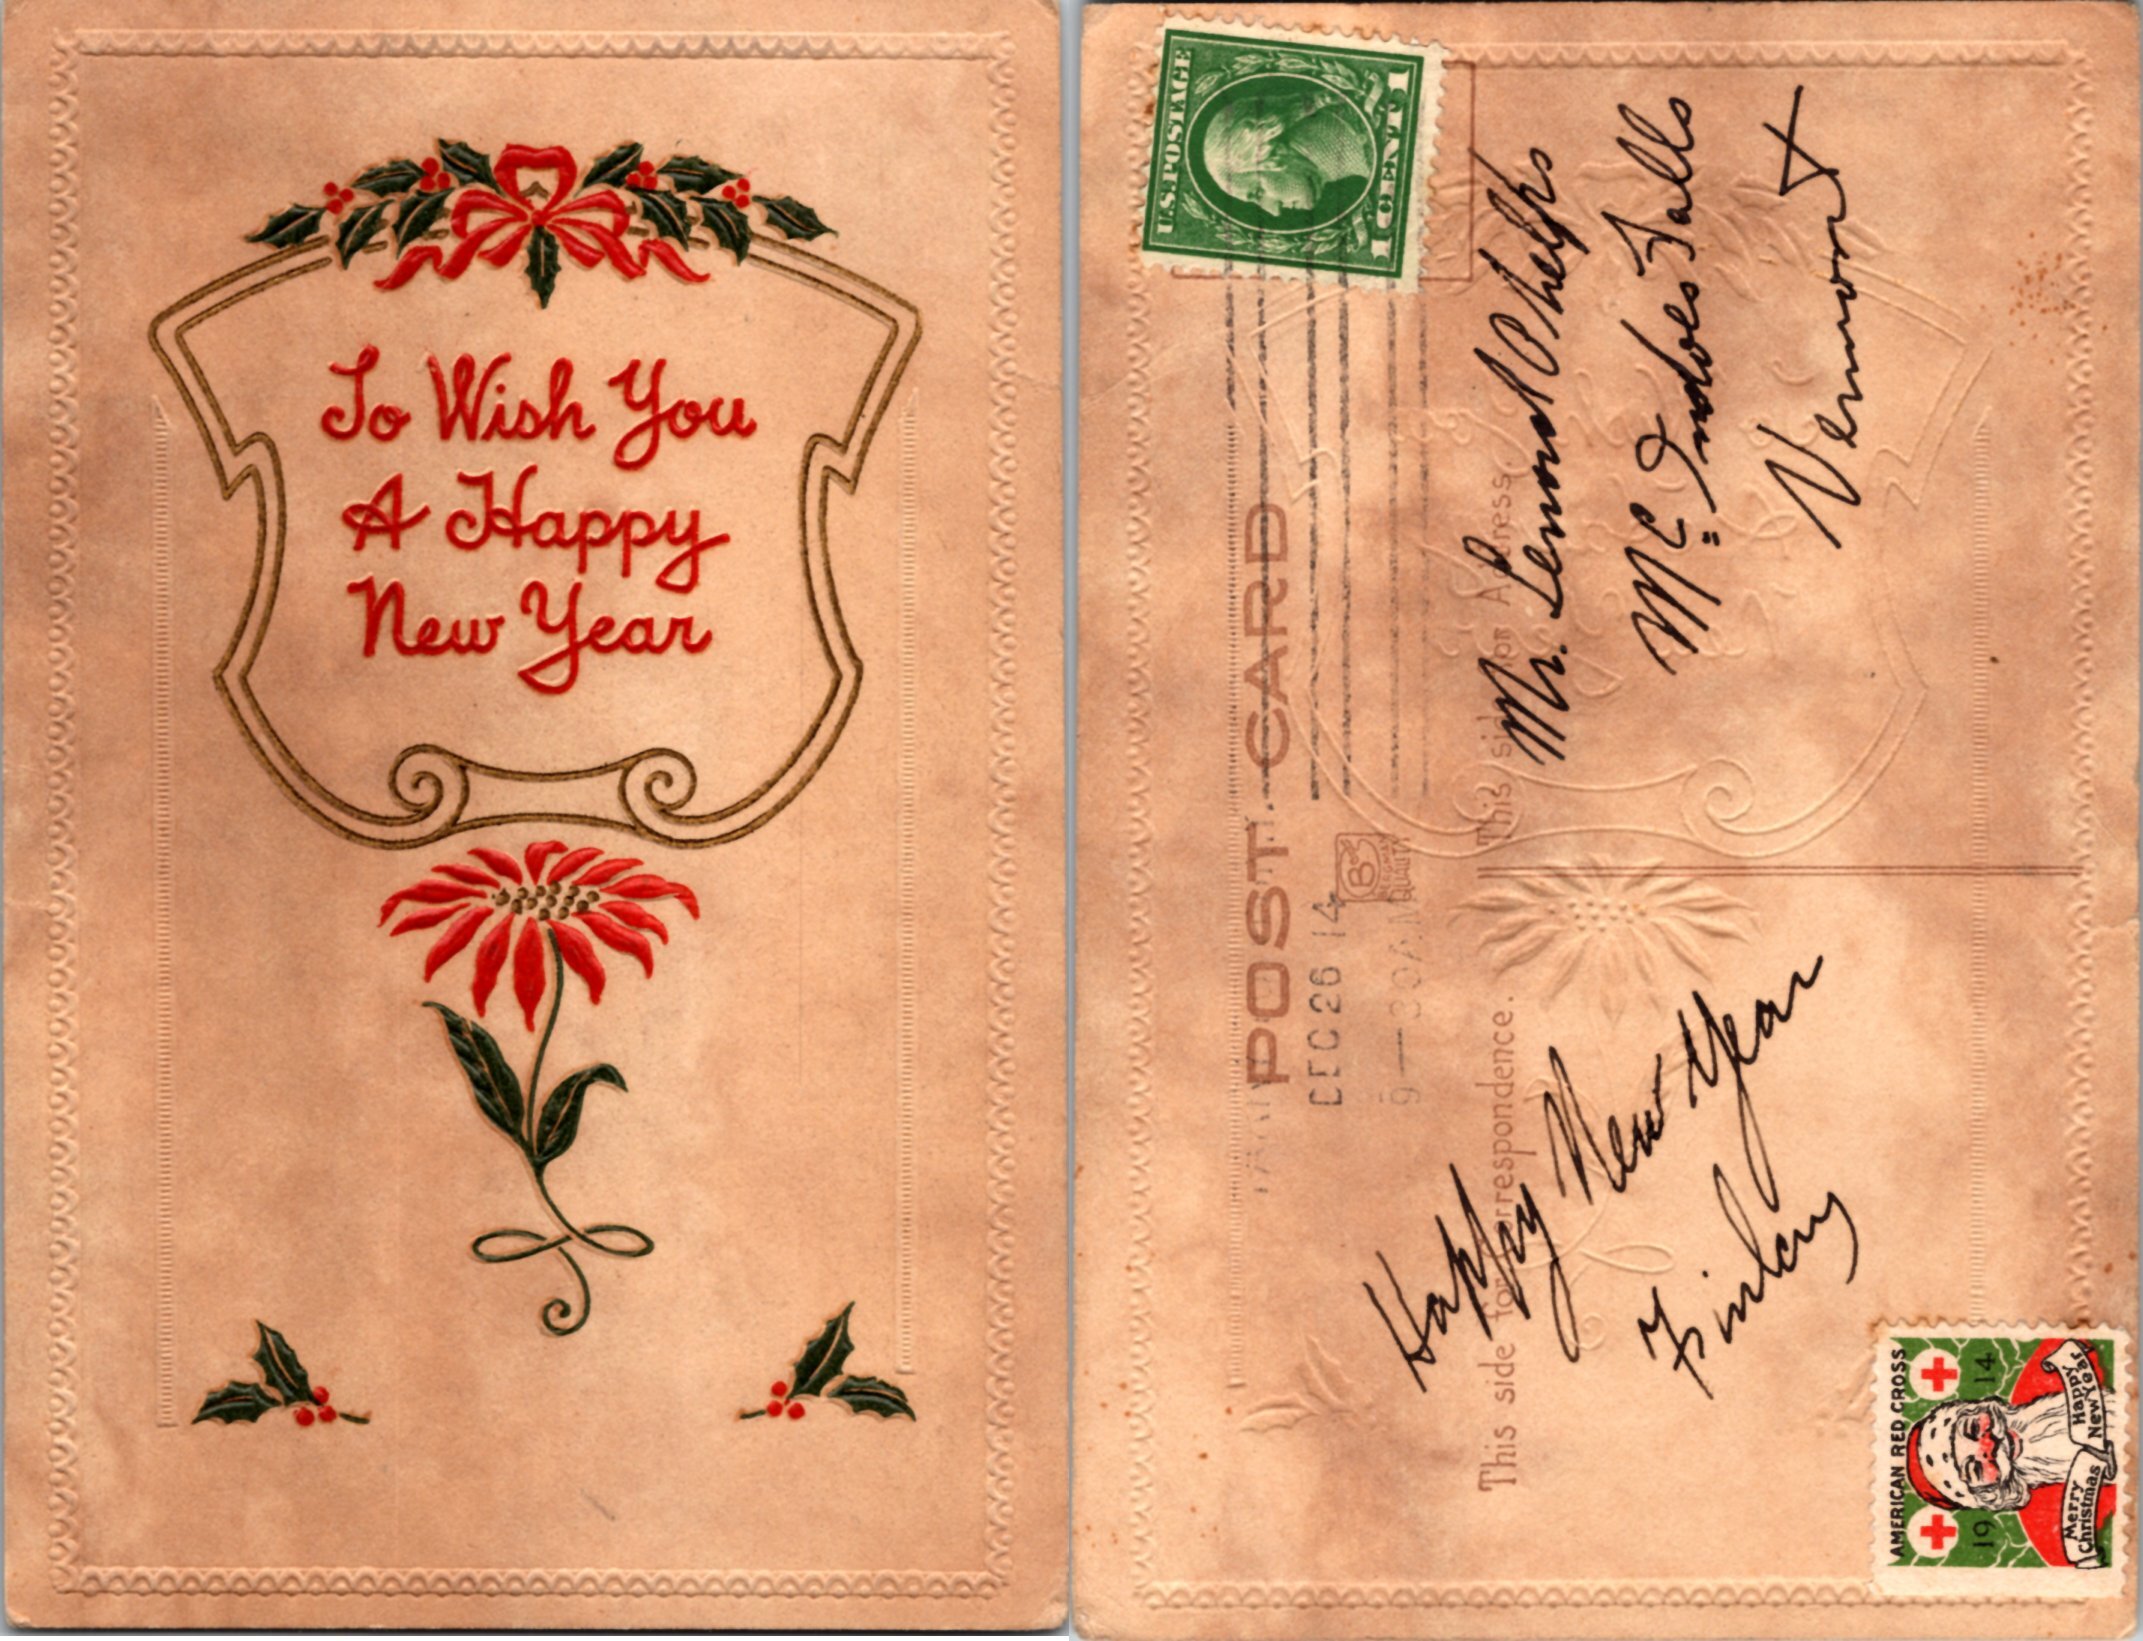 To Wish You
A Happy
New Year
U.S. POSTAGE
1 CENT 1
POST CARD
DEC 26 14
9–30 A.M
B
QUALITY
This side for correspondence.
This side for Address
Mr. Lemuel Phelps
Mc Indoes Falls
Vermont
Happy New Year
Finlay
AMERICAN RED CROSS
19 14
Merry Christmas
Happy New Year